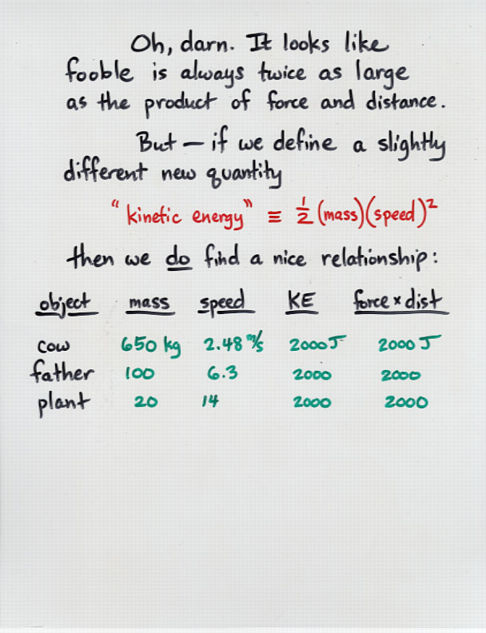 Oh, darn. It looks like
fooble is always twice as large
as the product of force and distance.
But — if we define a slightly
different new quantity
"kinetic energy" ≡ 1/2 (mass)(speed)²
then we do find a nice relationship:
object mass speed KE force × dist
cow 650 kg 2.48 m/s 2000 J 2000 J
father 100 6.3 2000 2000
plant 20 14 2000 2000